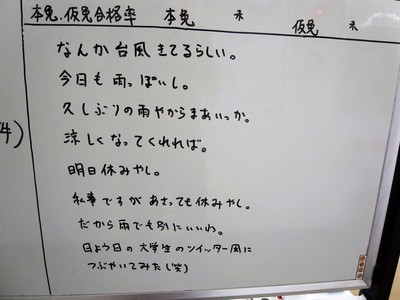 本免、仮免合格率 本免 仮免
なんか台風きてるらしい。
今日も雨っぽいし。
久しぶりの雨やからまあいっか。
涼しくなってくれれば。
明日休みやし。
私事ですがあさっても休みやし。
だから雨でも別にいいわ。
日よう日の大学生のツイッター風に
つぶやいてみた(笑)